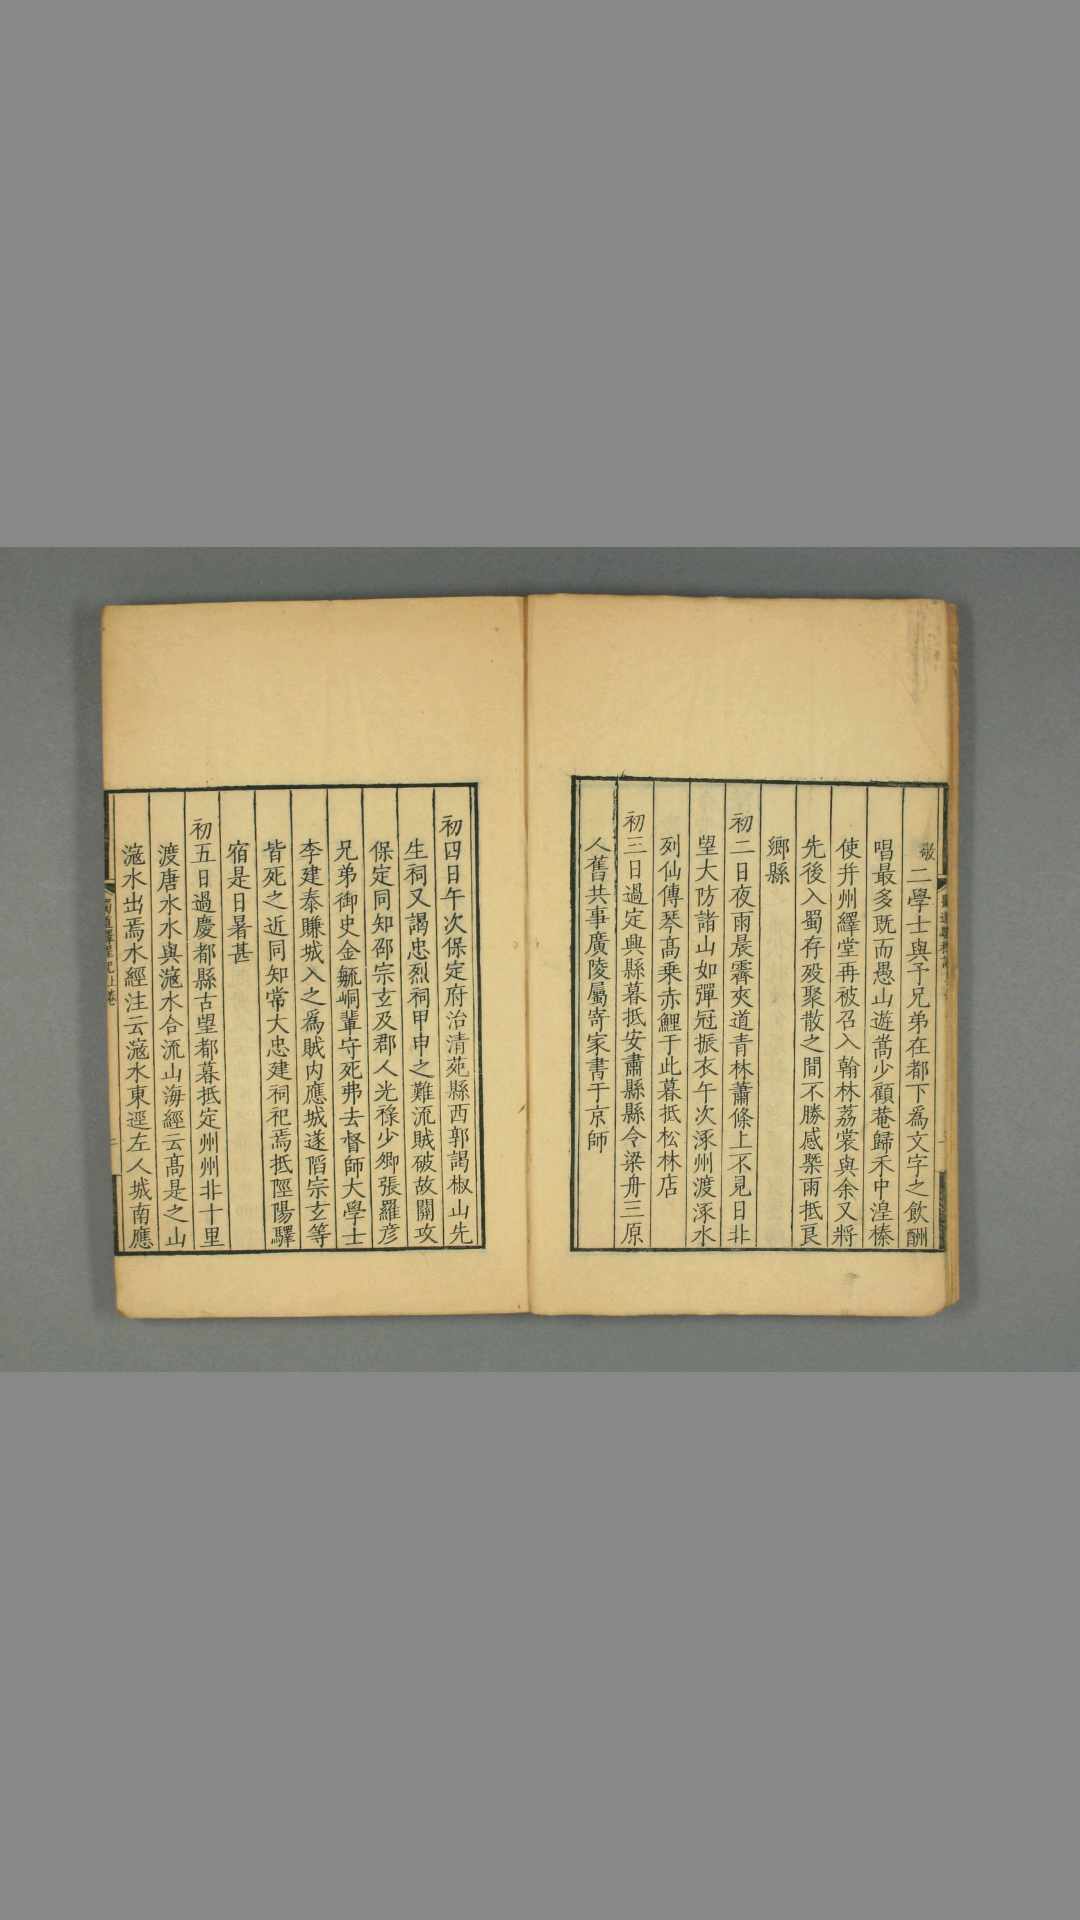 敬二學士與予兄弟在都下爲文字之飲酬
唱最多既而愚山遊嵩少顧菴歸禾中湟榛
使幷州繹堂再被召入翰林荔裳與余又將
先後入蜀存殁聚散之間不勝感槩雨抵良
鄉縣
初二日夜雨晨霽夾道青林蕭條上不見日北
望大防諸山如彈冠振衣午次涿州渡涿水
列仙傳琴高乘赤鯉于此暮抵松林店
初三日過定興縣暮抵安肅縣縣令梁舟三原
人舊共事廣陵屬寄家書于京師
初四日午次保定府治清苑縣西郭謁椒山先
生祠又謁忠烈祠甲申之難流賊破故關攻
保定同知邵宗玄及郡人光祿少卿張羅彥
兄弟御史金毓峒輩守死弗去督師大學士
李建泰賺城入之爲賊内應城遂陷宗玄等
皆死之近同知常大忠建祠祀焉抵陘陽驛
宿是日暑甚
初五日過慶都縣古望都暮抵定州州北十里
渡唐水水與滱水合流山海經云高是之山
滱水出焉水經注云滱水東逕左人城南應
蜀道驛程記上卷
二